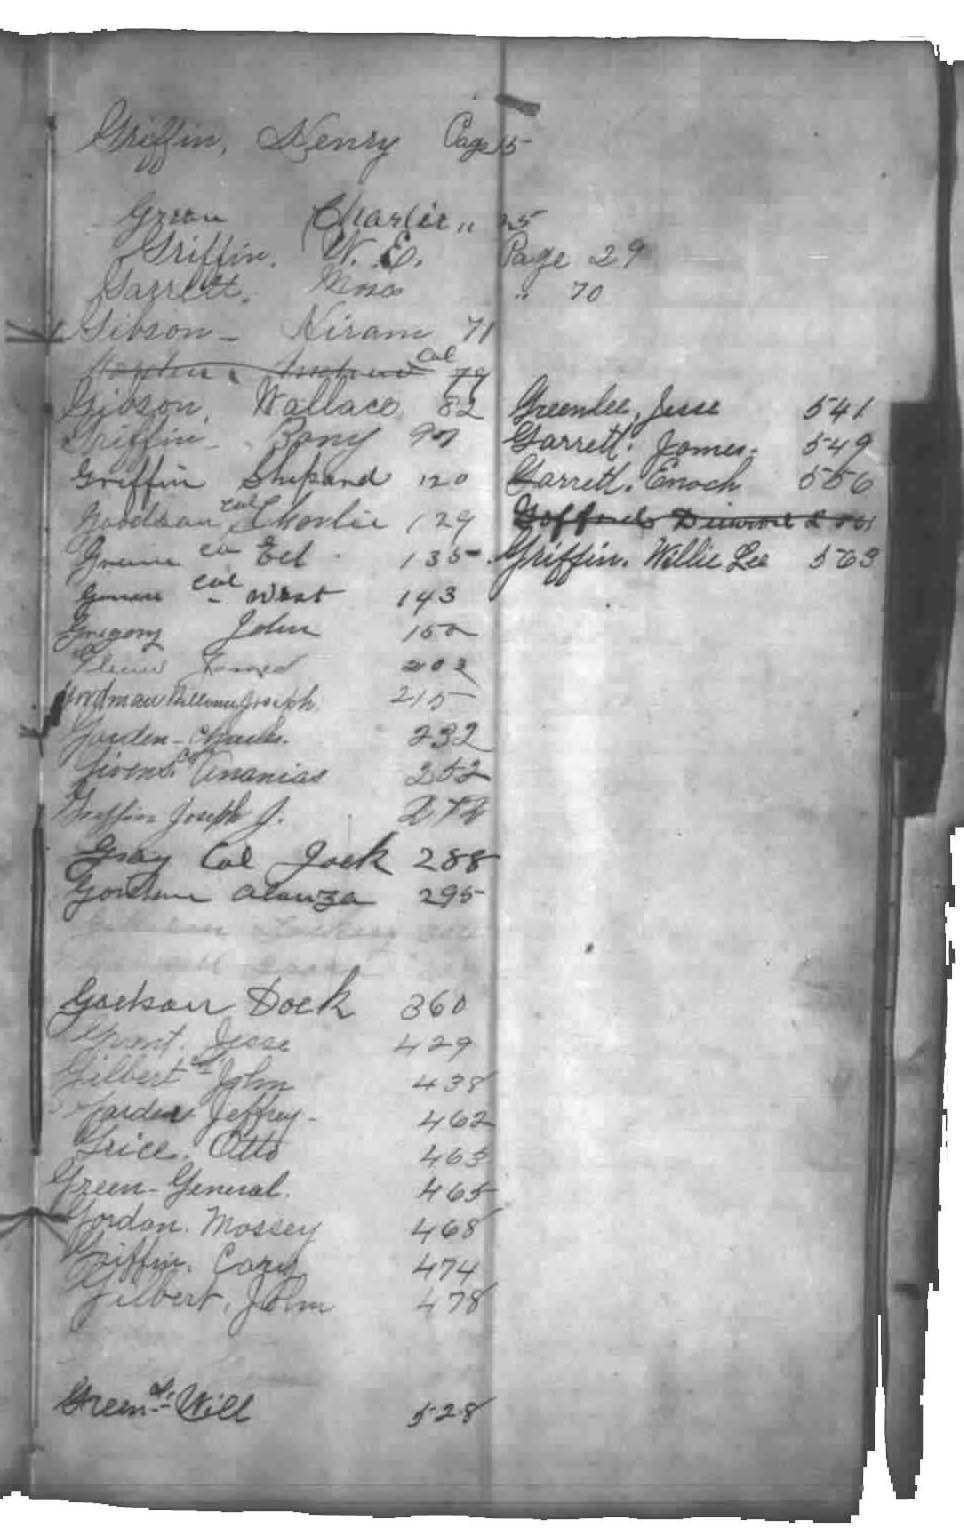 Griffin, Henry Page 5
Green Charlie " 25
Griffin. W. E. Page 29
Garrett, " 70
Gibson - Hiram 71
Col 79
Gibson, Wallace 82
Griffin - Bony
Griffin Shepard 120
Goodson col Charlie 129
Greene co Ed 135
col - West 143
Gregory John
James 202
Goodman William Joseph 215
Gorden - Charles. 232
Givens Co Ananias 252
Griffin Joseph J.
Gray Col Jack 288
Alonza 295
Jackson Dock 360
Grant. Jesse 429
Gilbert John 438
Garden Jeffrey - 462
Grice. Otto 463
Green - General. 465
Gordon. Mossey 468
Griffin. Cary 474
Gilbert, John 478
Green - Will 528
Greenlee, Jesse 541
Garrett. James. 549
Garrett. Enoch 556
Griffin. Willie Lee 563